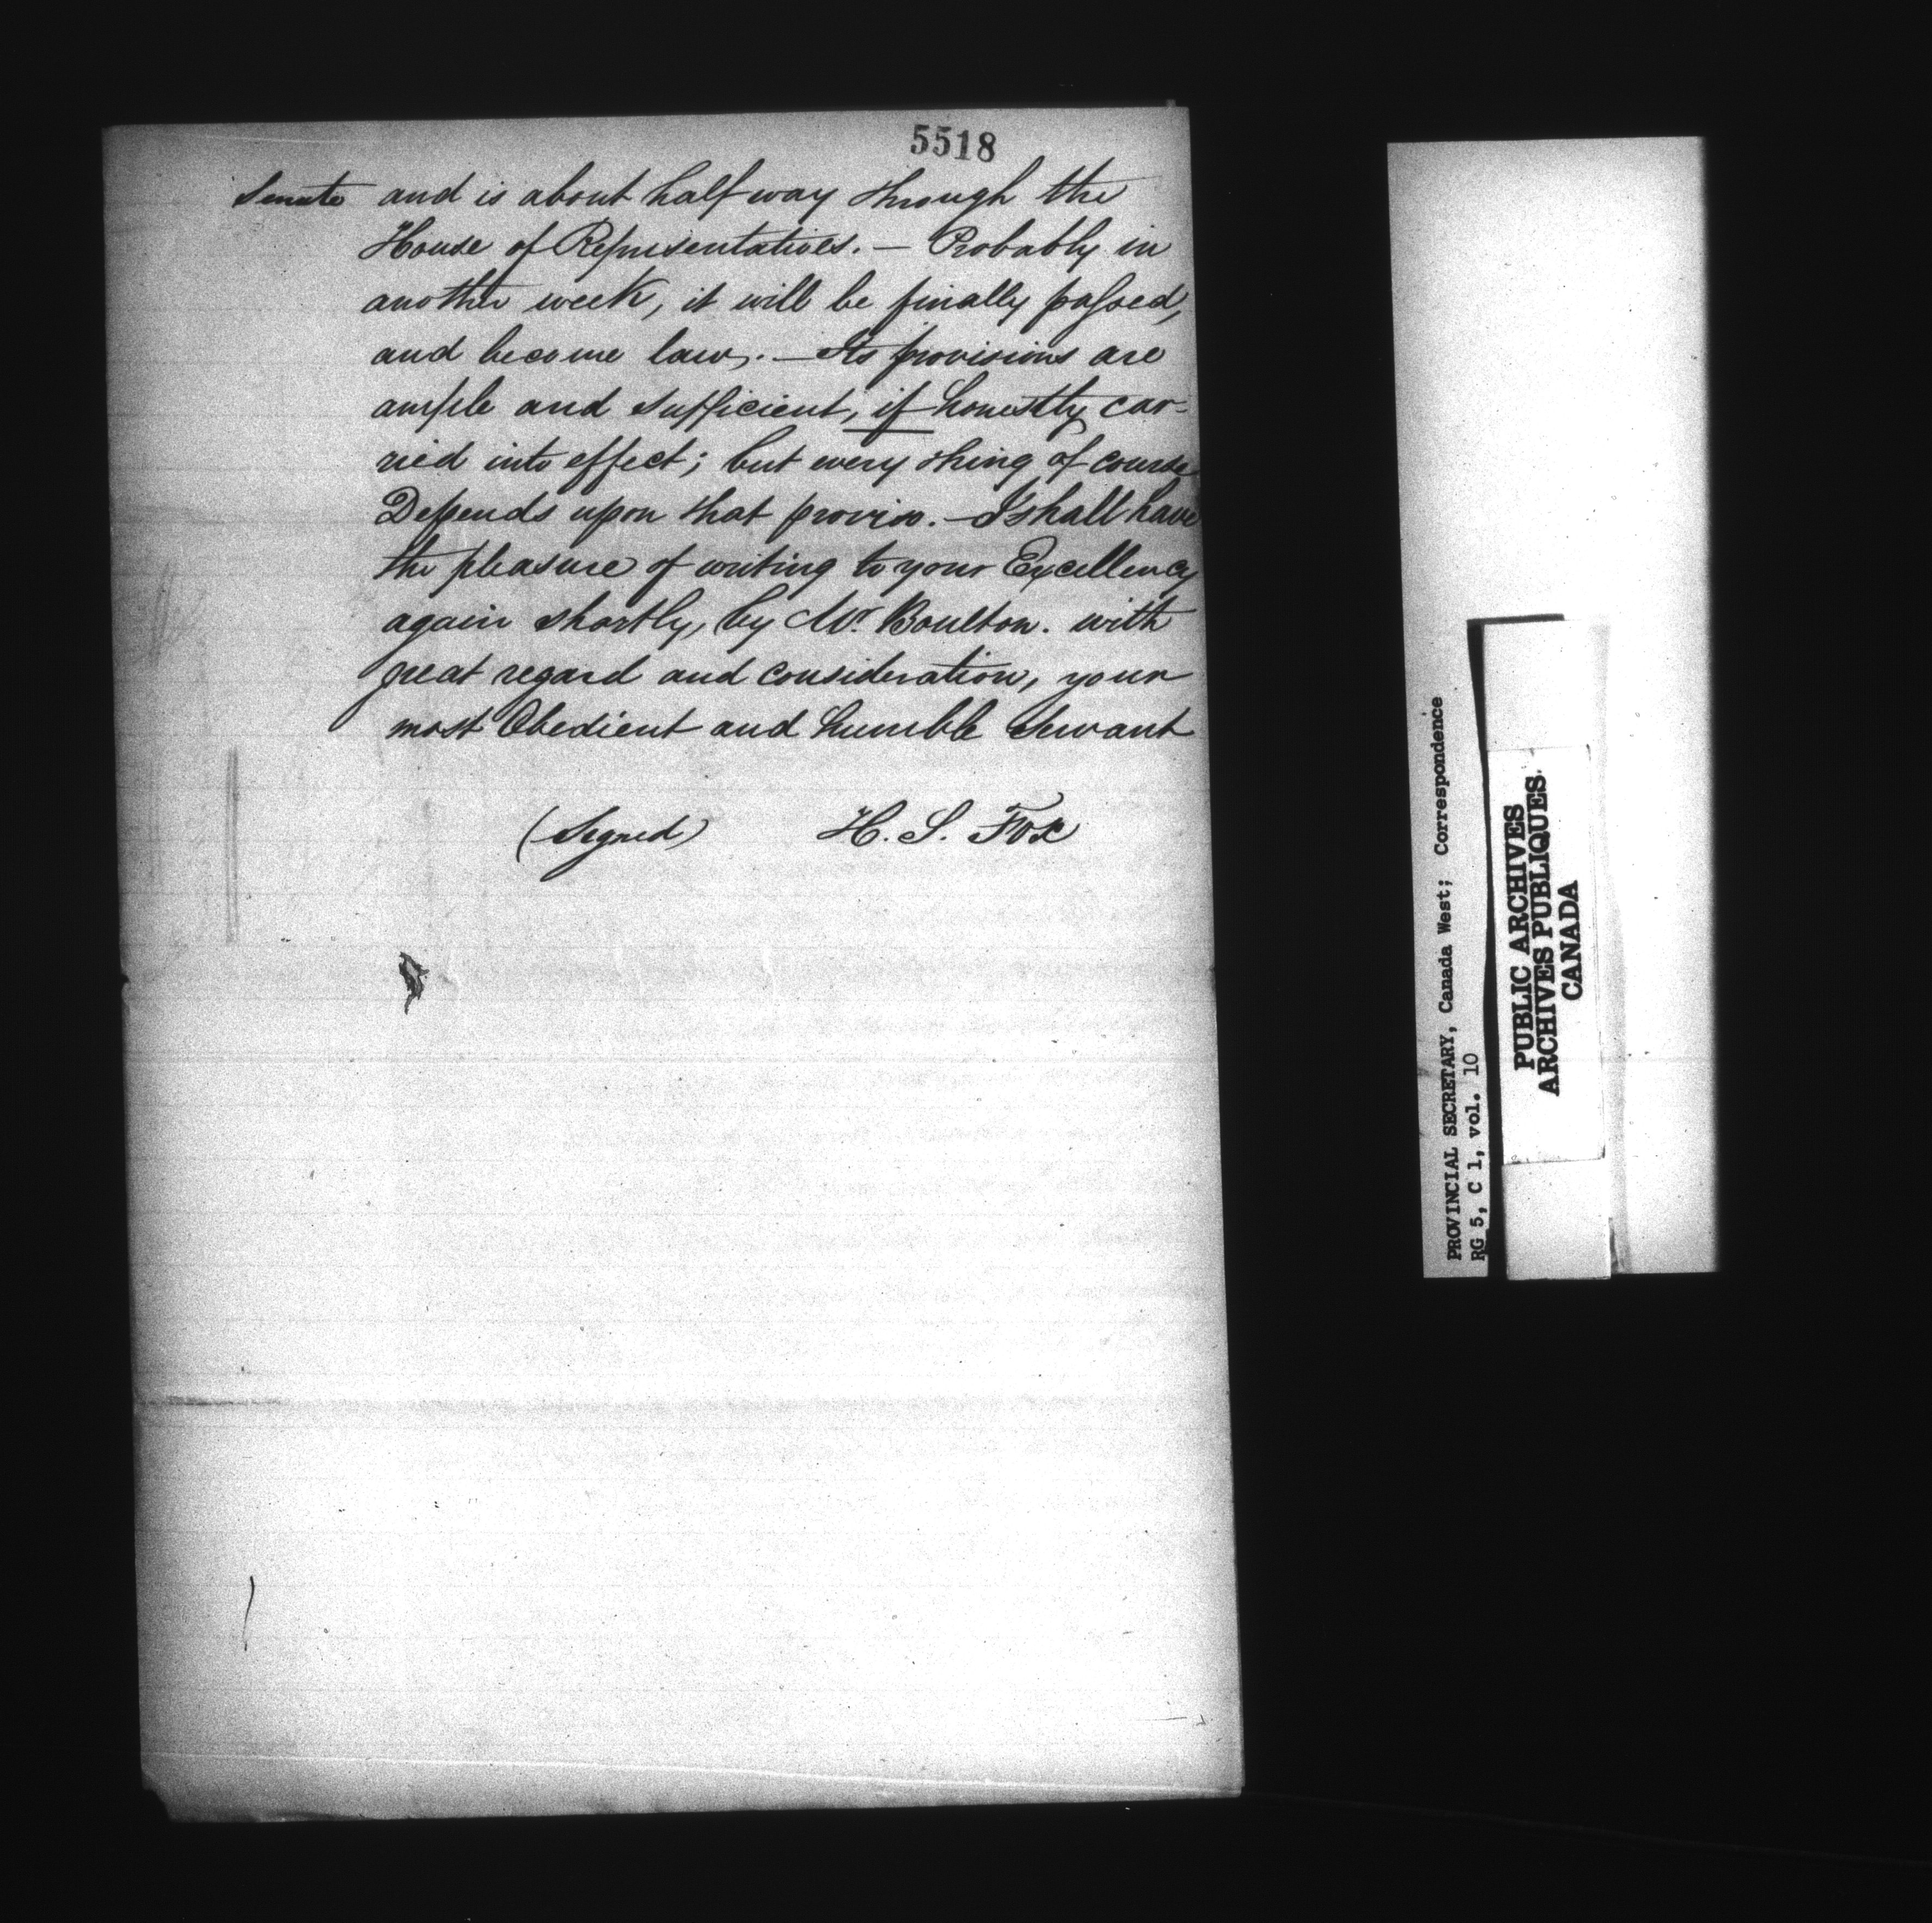 5518
Senate and is about half way through the
House of Representatives. — Probably in
another week, it will be finally passed,
and become law. — Its provisions are
ample and sufficient, if honestly car-
ried into effect; but every thing of course
Depends upon that proviso. — I shall have
the pleasure of writing to your Excellency
again shortly, by Mr. Boulton. with
great regard and consideration, your
most Obedient and humble Servant
(Signed) H. S. Fox
PROVINCIAL SECRETARY, Canada West; Correspondence
RG 5, C 1, vol. 10
PUBLIC ARCHIVES
ARCHIVES PUBLIQUES
CANADA